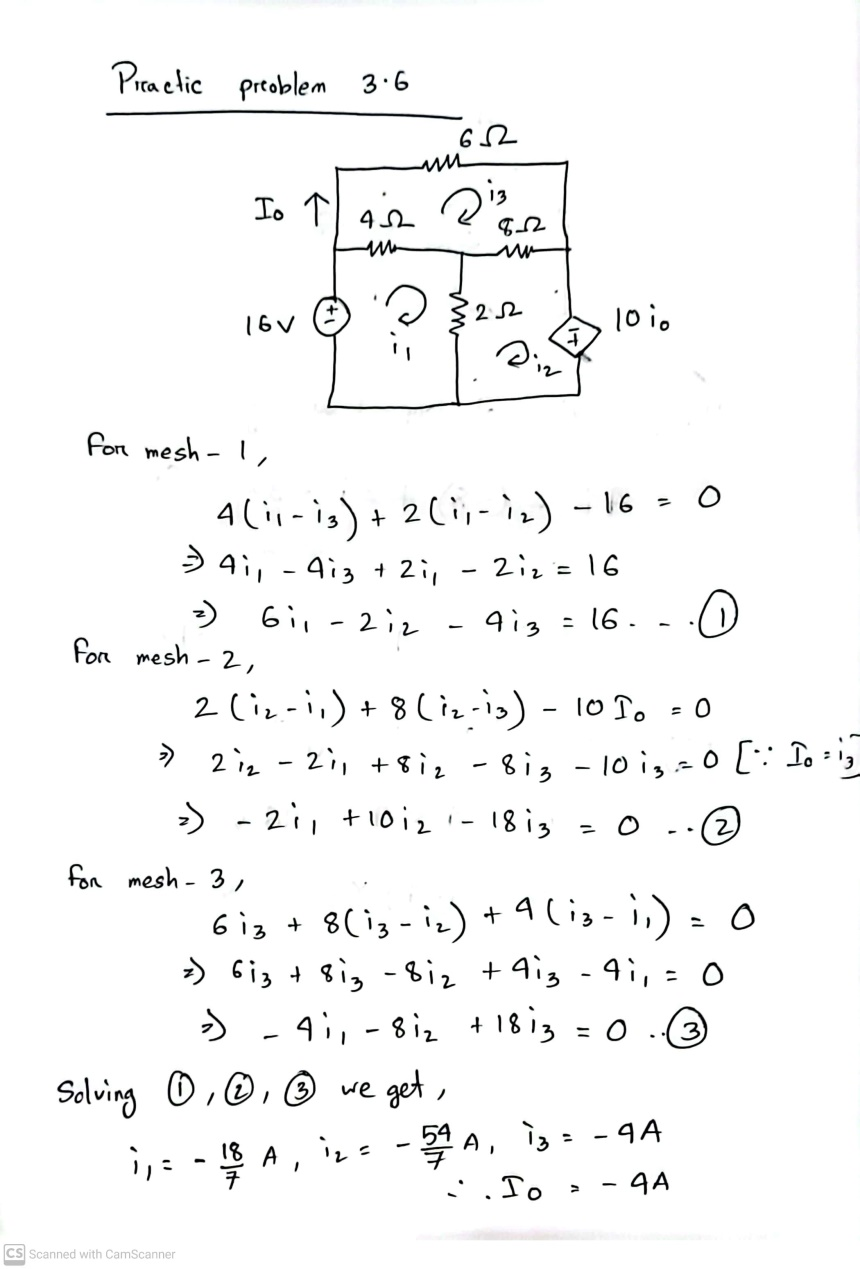 Practic problem 3.6
6Ω
I₀ ↑
i3
4Ω
8Ω
16V
+
-
i₁
2Ω
i2
-
+
10 i₀
for mesh - 1,
4(i₁ - i₃) + 2(i₁ - i₂) - 16 = 0
⇒ 4i₁ - 4i₃ + 2i₁ - 2i₂ = 16
⇒ 6i₁ - 2i₂ - 4i₃ = 16 - - - ①
for mesh - 2,
2(i₂ - i₁) + 8(i₂ - i₃) - 10 I₀ = 0
⇒ 2i₂ - 2i₁ + 8i₂ - 8i₃ - 10i₃ = 0 [∵ I₀ = i₃]
⇒ -2i₁ + 10i₂ - 18i₃ = 0 - - ②
for mesh - 3,
6i₃ + 8(i₃ - i₂) + 4(i₃ - i₁) = 0
⇒ 6i₃ + 8i₃ - 8i₂ + 4i₃ - 4i₁ = 0
⇒ -4i₁ - 8i₂ + 18i₃ = 0 .. ③
Solving ①, ②, ③ we get,
i₁ = -18/7 A, i₂ = -54/7 A, i₃ = -4A
∴ I₀ = -4A
CS Scanned with CamScanner